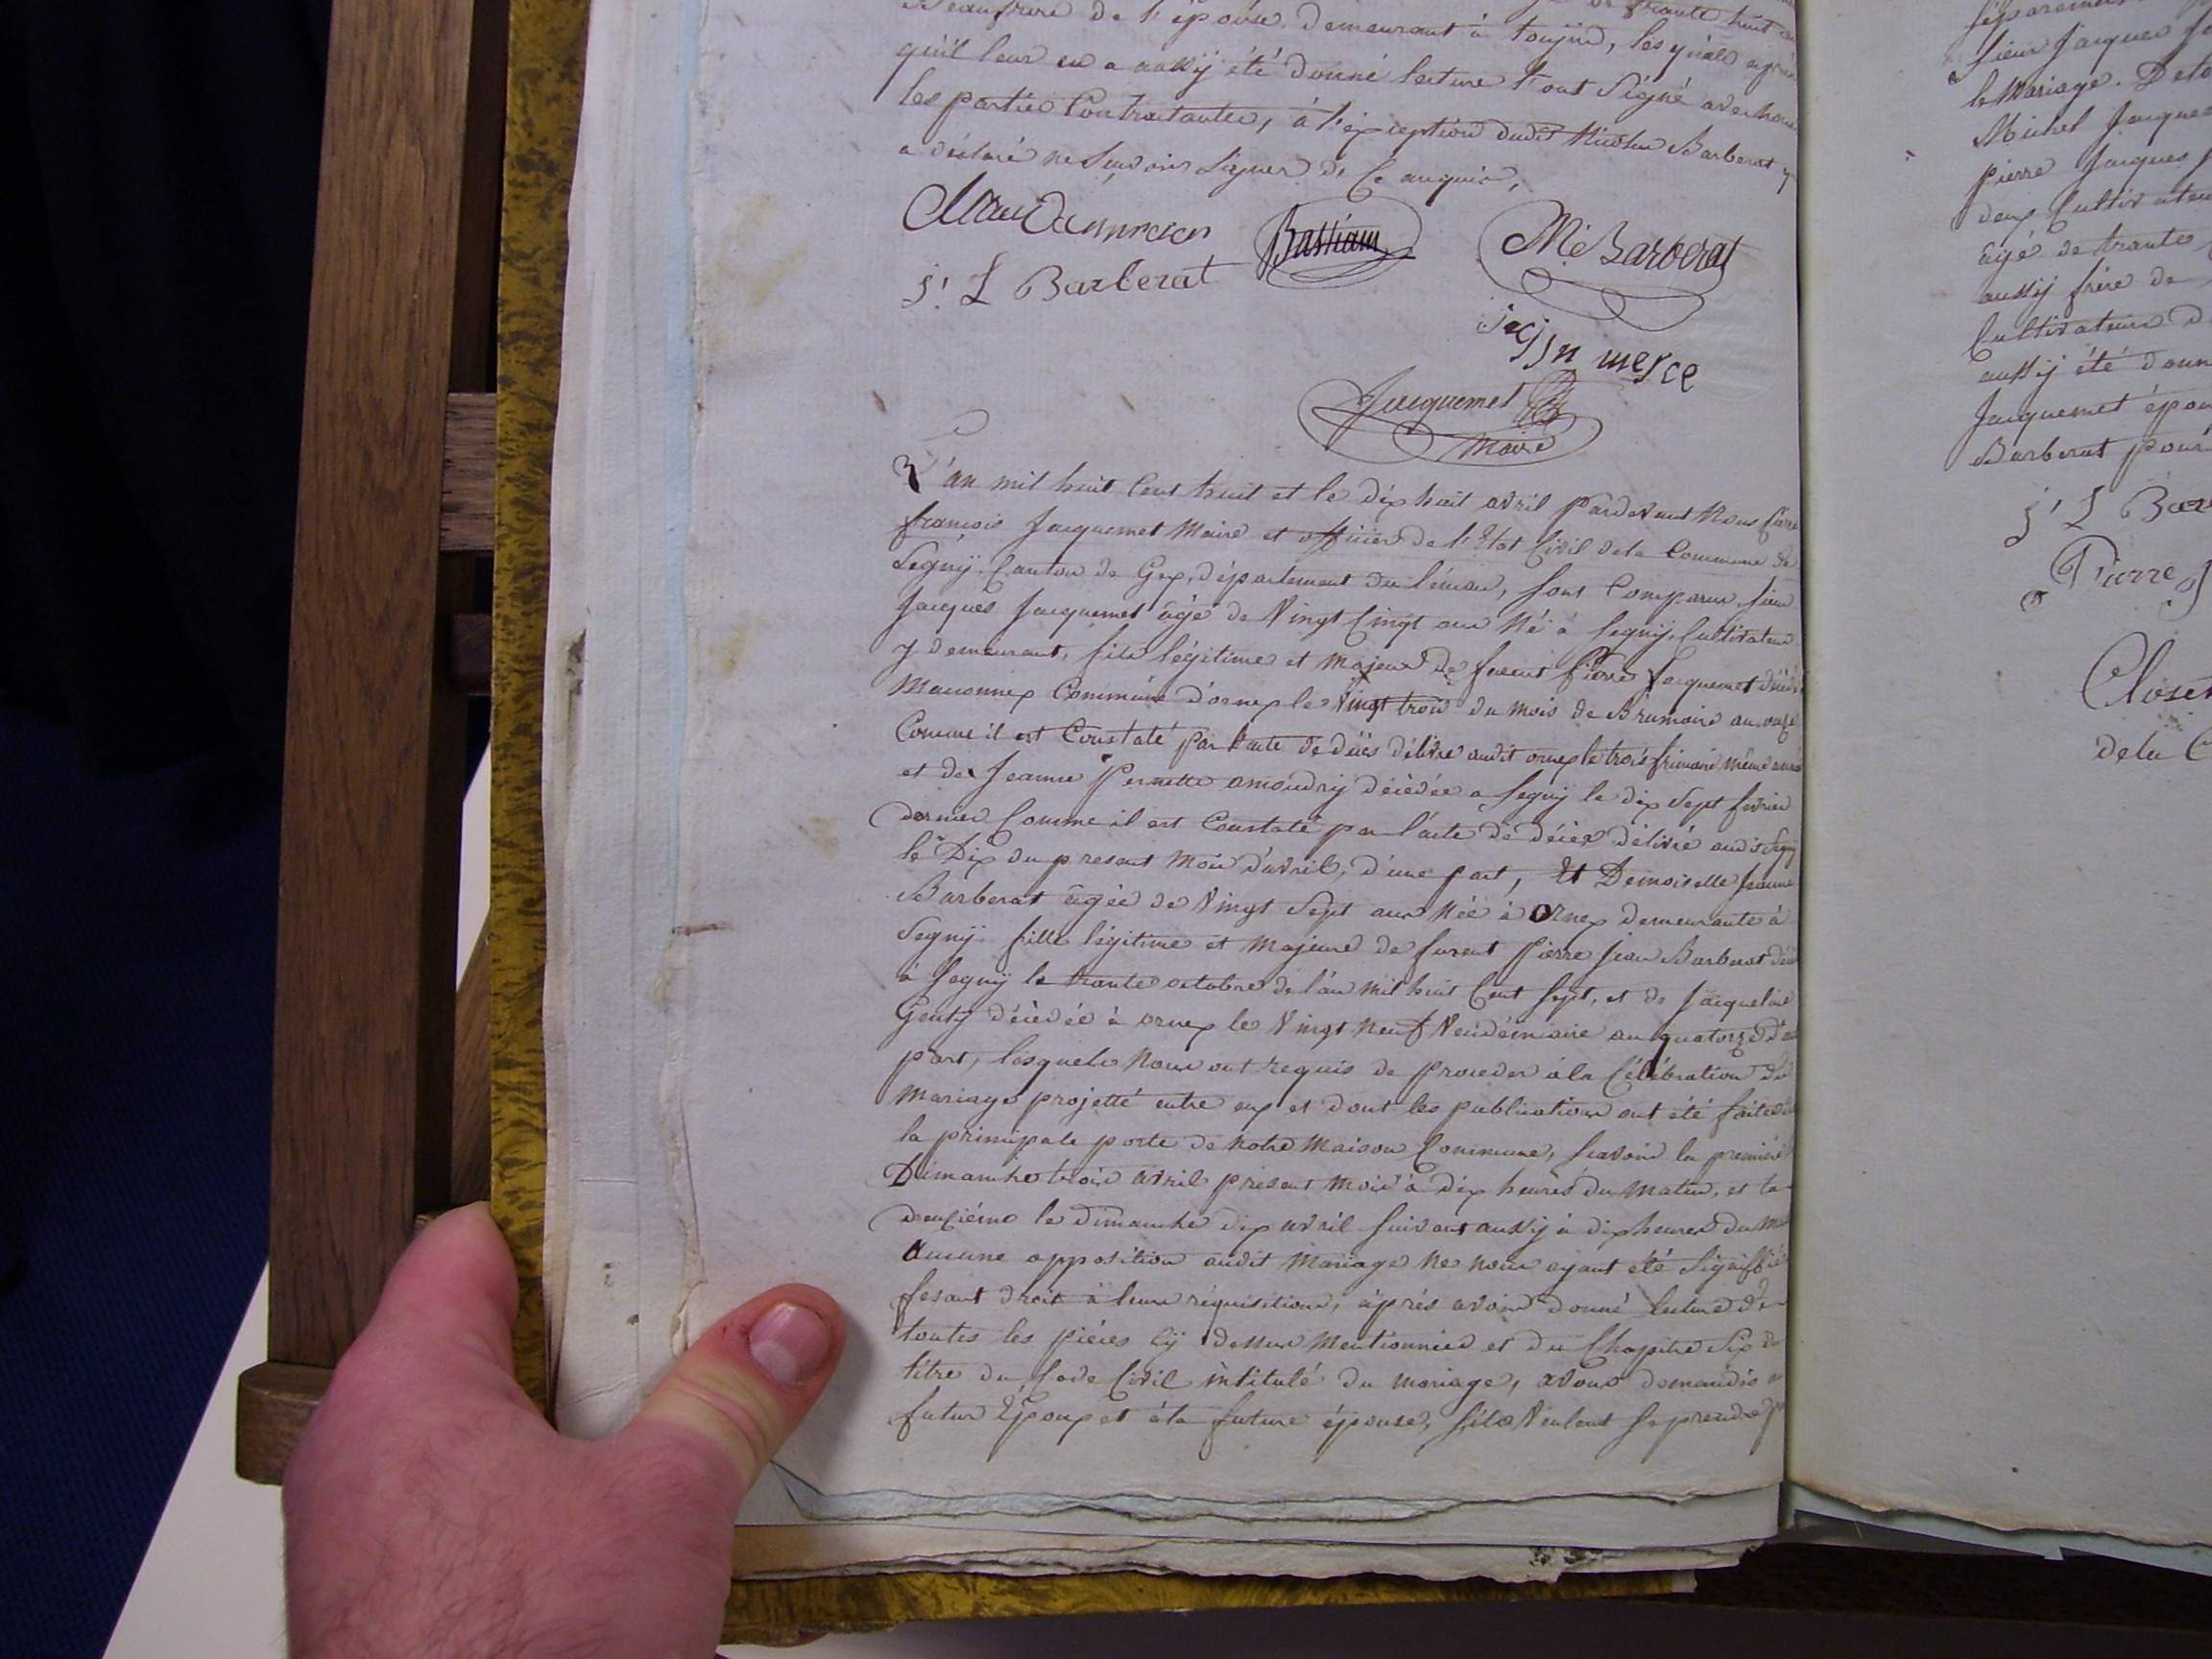 Beaufrere de l'épouse, demeurant à toujin, lesquels après
qu'il leur en a aussÿ été donné lecture l'ont Signé avec nous
les partie Contractantes, à l'éxception dudit Nicolas Barberat q
a déclaré ne Savoir Signer de Ce enquis,
Bastian
Mie Barberat
j! L Barberat
merce
Jacquemet
Maire
L'an mil huit Cent huit et le dix huit avril Pardevant Nous Pierre
françois Jacquemet Maire et officier de l'Etat Civil dela Commune de
Segnÿ Canton de Gex, département du Léman, sont Comparus Sieur
Jacques Jacquemet âgé de Vingt Cinq ans Né à Segnÿ, Cultivateur
y demeurant, fils légitime et Majeur de furent Pierre Jacquemet décédé
Maconnex Commune d'ornex le Vingt trois du mois de Brumaire an onze
Comme il est Constaté par l'acte de décès délivré audit ornex le trois frimaire même année
et de Jeanne Pernette amoudry décédée a Segnÿ le dix Sept février
dernier Comme il est Constaté par l'acte de décès délivré audit Segnÿ
le Dix du present Mois d'avril, d'une part, Et Demoiselle Jeanne
Barberat âgée de Vingt Sept ans Née à Ornex demeurante à
Segnÿ fille légitime et Majeure de furent Pierre Jean Barberat
à Segnÿ le trante octobre de l'an mil huit Cent Sept, et de Jacqueline
Genty décédée à ornex le Vingt neuf Vendémiaire an quatorze d'
part, lesquels Nous ont requis de Proceder àla Célébration du
Mariage projetté entre eux et dont les publications ont été faites
la principale porte de notre Maison Commune, Savoir la premiére
Dimanche trois avril présent mois à dix heures du Matin, et la
deuxiéme le dimanche dix avril Suivant aussÿ à dix heures du
Aucune opposition audit Mariage ne nous ayant été Signiffiée
fesant droit à leurs réquisitions, après avoir donné lecture de
toutes les piéces cÿ dessus Mentionnées et du Chapitre Six du
titre du Code Civil intitulé du Mariage, avons demandés
futur Époux et àla future épouse, S'ils Veulent Se prendre
Sieur Jacques
le Mariage. De
Michel Jacque
pierre Jacques
deux Cultivateu
âgé de trante
aussÿ frère de
Cultivateur d
aussÿ été donn
Jacquemet épou
Barberat pour
j! L Bar
Pierre J
Closet
dela C